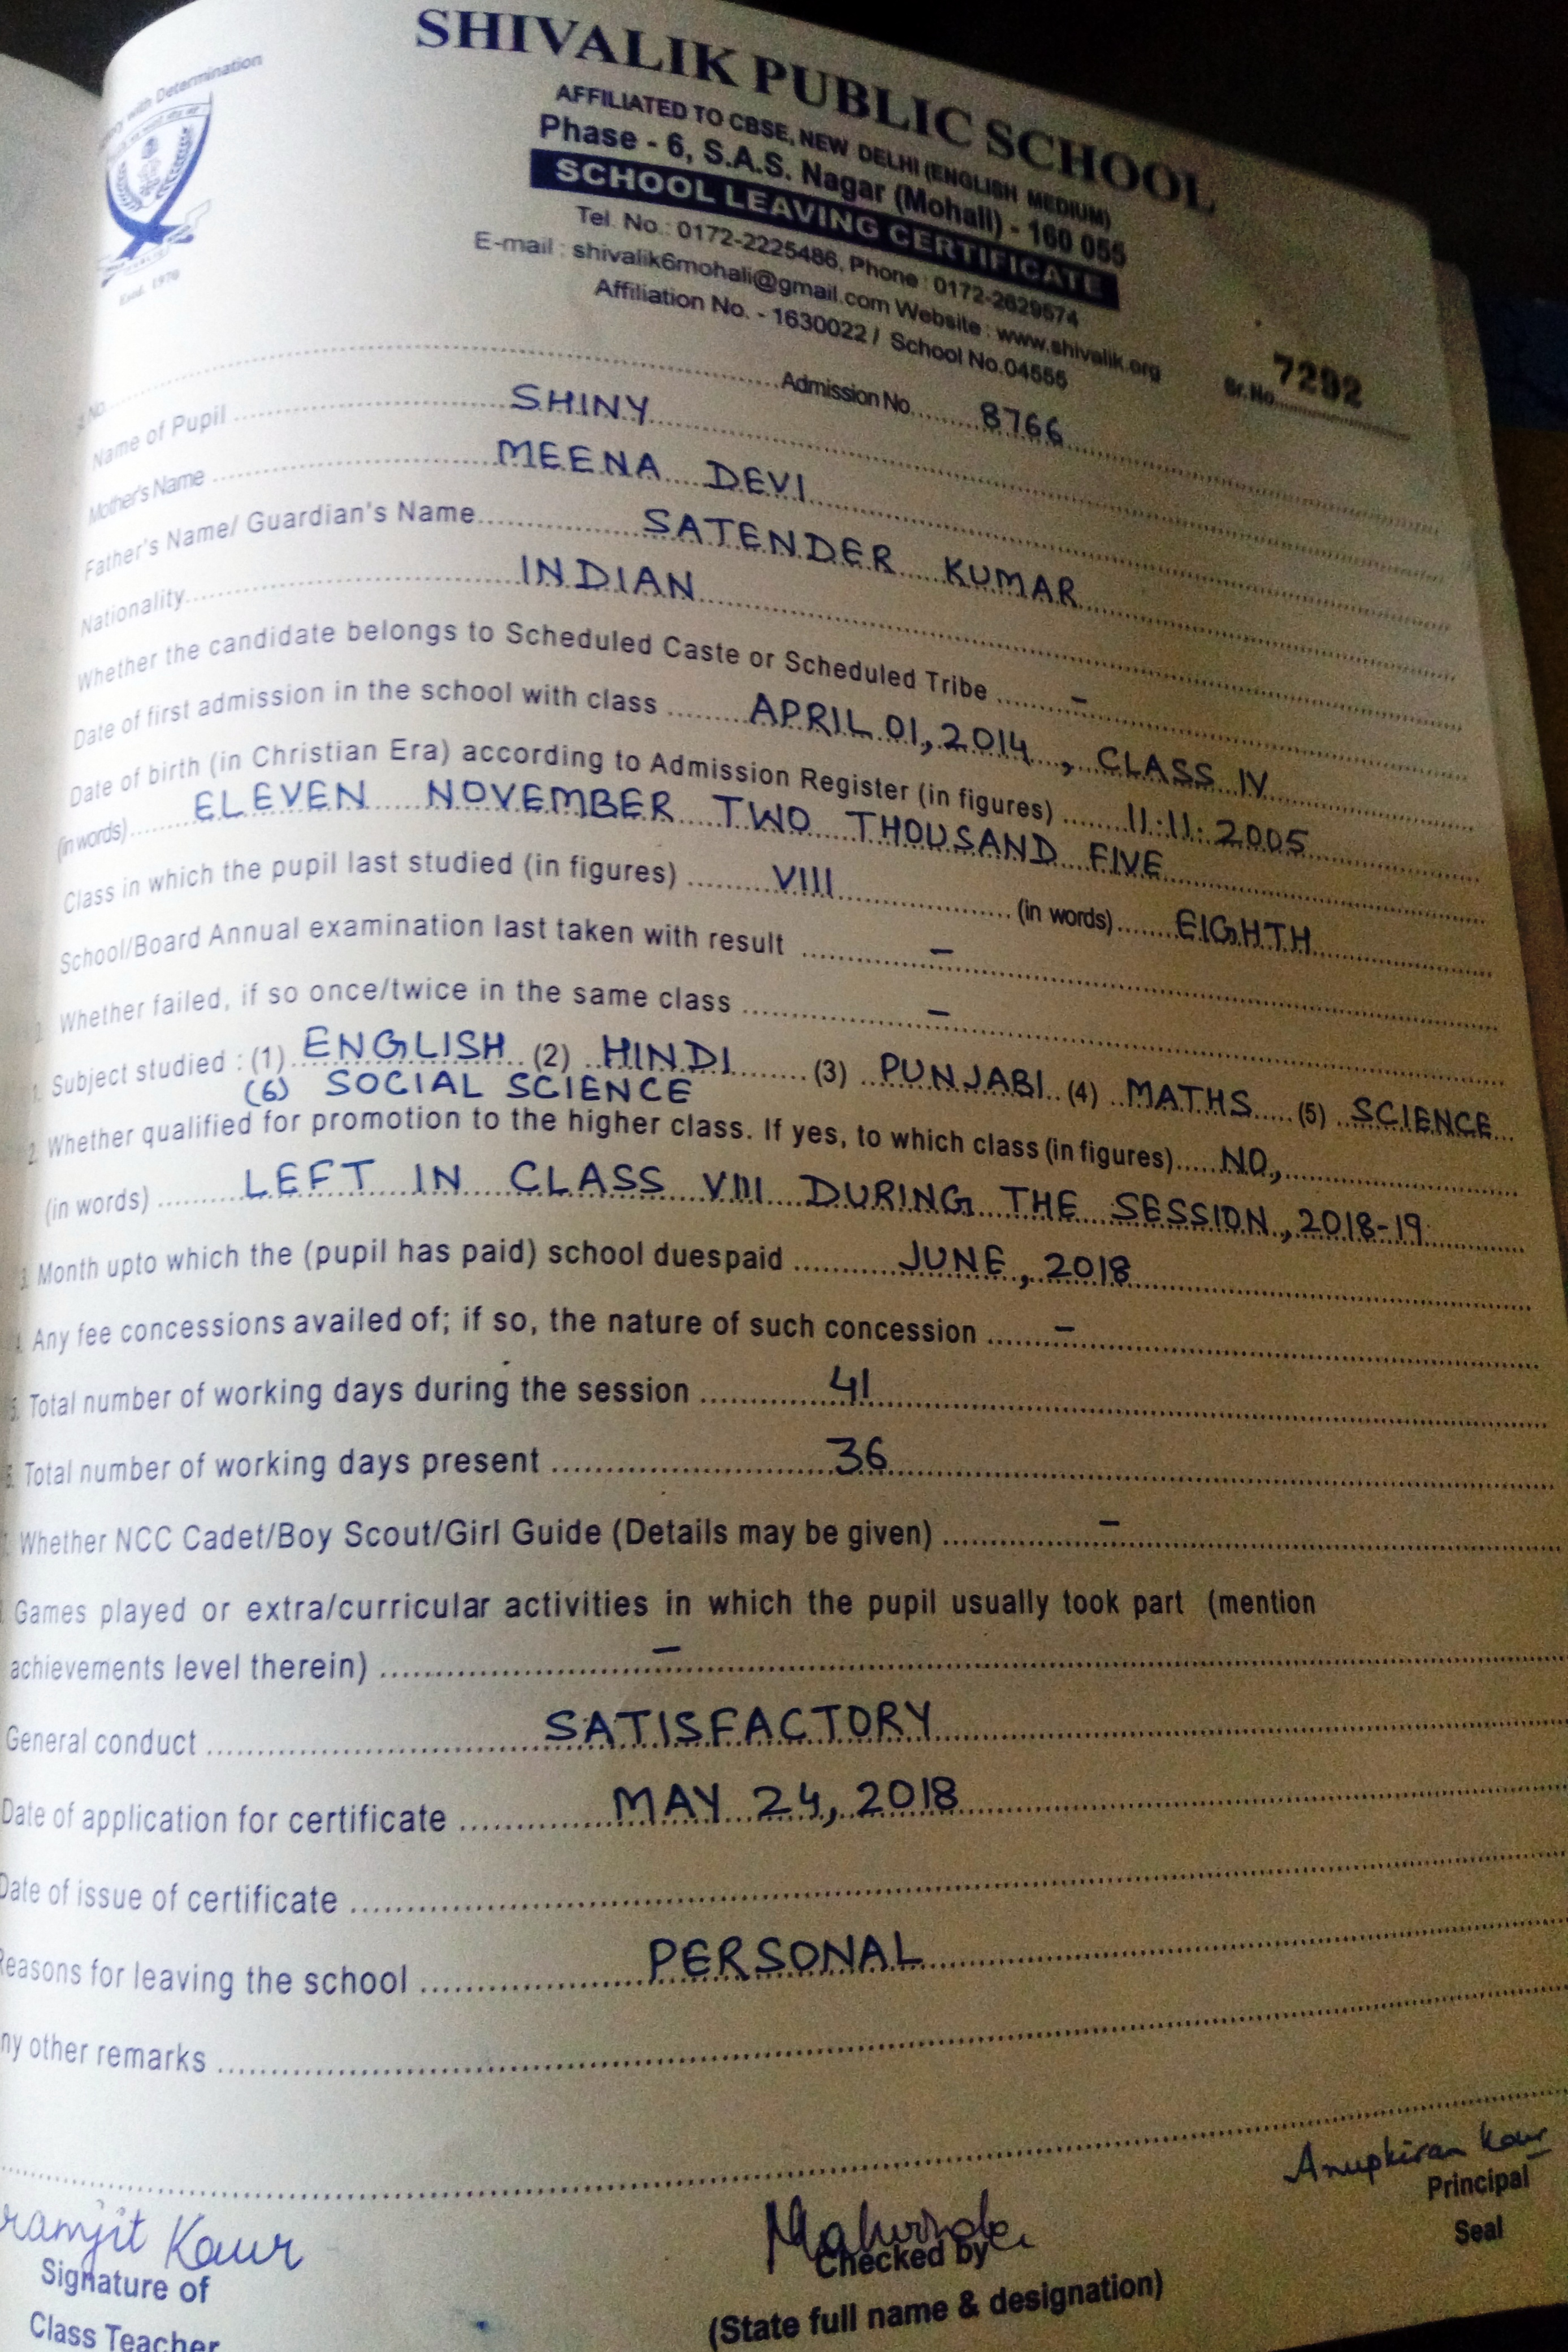 with Determination
Estd. 1970
SHIVALIK PUBLIC SCHOOL
AFFILIATED TO CBSE, NEW DELHI (ENGLISH MEDIUM)
Phase - 6, S.A.S. Nagar (Mohali) - 160 055
SCHOOL LEAVING CERTIFICATE
Tel. No.: 0172-2225486, Phone : 0172-2629574
E-mail : shivalik6mohali@gmail.com Website : www.shivalik.org
Affiliation No. - 1630022 / School No.04555
Sr.No. 7292
No. Admission No. 8766
Name of Pupil SHINY
Mother's Name MEENA DEVI
Father's Name/ Guardian's Name SATENDER KUMAR
Nationality INDIAN
Whether the candidate belongs to Scheduled Caste or Scheduled Tribe -
Date of first admission in the school with class APRIL 01, 2014, CLASS IV
Date of birth (in Christian Era) according to Admission Register (in figures) 11.11.2005
(in words) ELEVEN NOVEMBER TWO THOUSAND FIVE
Class in which the pupil last studied (in figures) VIII (in words) EIGHTH
School/Board Annual examination last taken with result -
Whether failed, if so once/twice in the same class -
Subject studied : (1) ENGLISH (2) HINDI (3) PUNJABI (4) MATHS (5) SCIENCE
(6) SOCIAL SCIENCE
Whether qualified for promotion to the higher class. If yes, to which class (in figures) NO,
(in words) LEFT IN CLASS VIII DURING THE SESSION, 2018-19
Month upto which the (pupil has paid) school duespaid JUNE, 2018
Any fee concessions availed of; if so, the nature of such concession -
Total number of working days during the session 41
Total number of working days present 36
Whether NCC Cadet/Boy Scout/Girl Guide (Details may be given) -
Games played or extra/curricular activities in which the pupil usually took part (mention
achievements level therein) -
General conduct SATISFACTORY
Date of application for certificate MAY 24, 2018
Date of issue of certificate
Reasons for leaving the school PERSONAL
ny other remarks
ramjit Kaur
Signature of
Class Teacher
Checked by
(State full name & designation)
Anupkiran Kaur
Principal
Seal